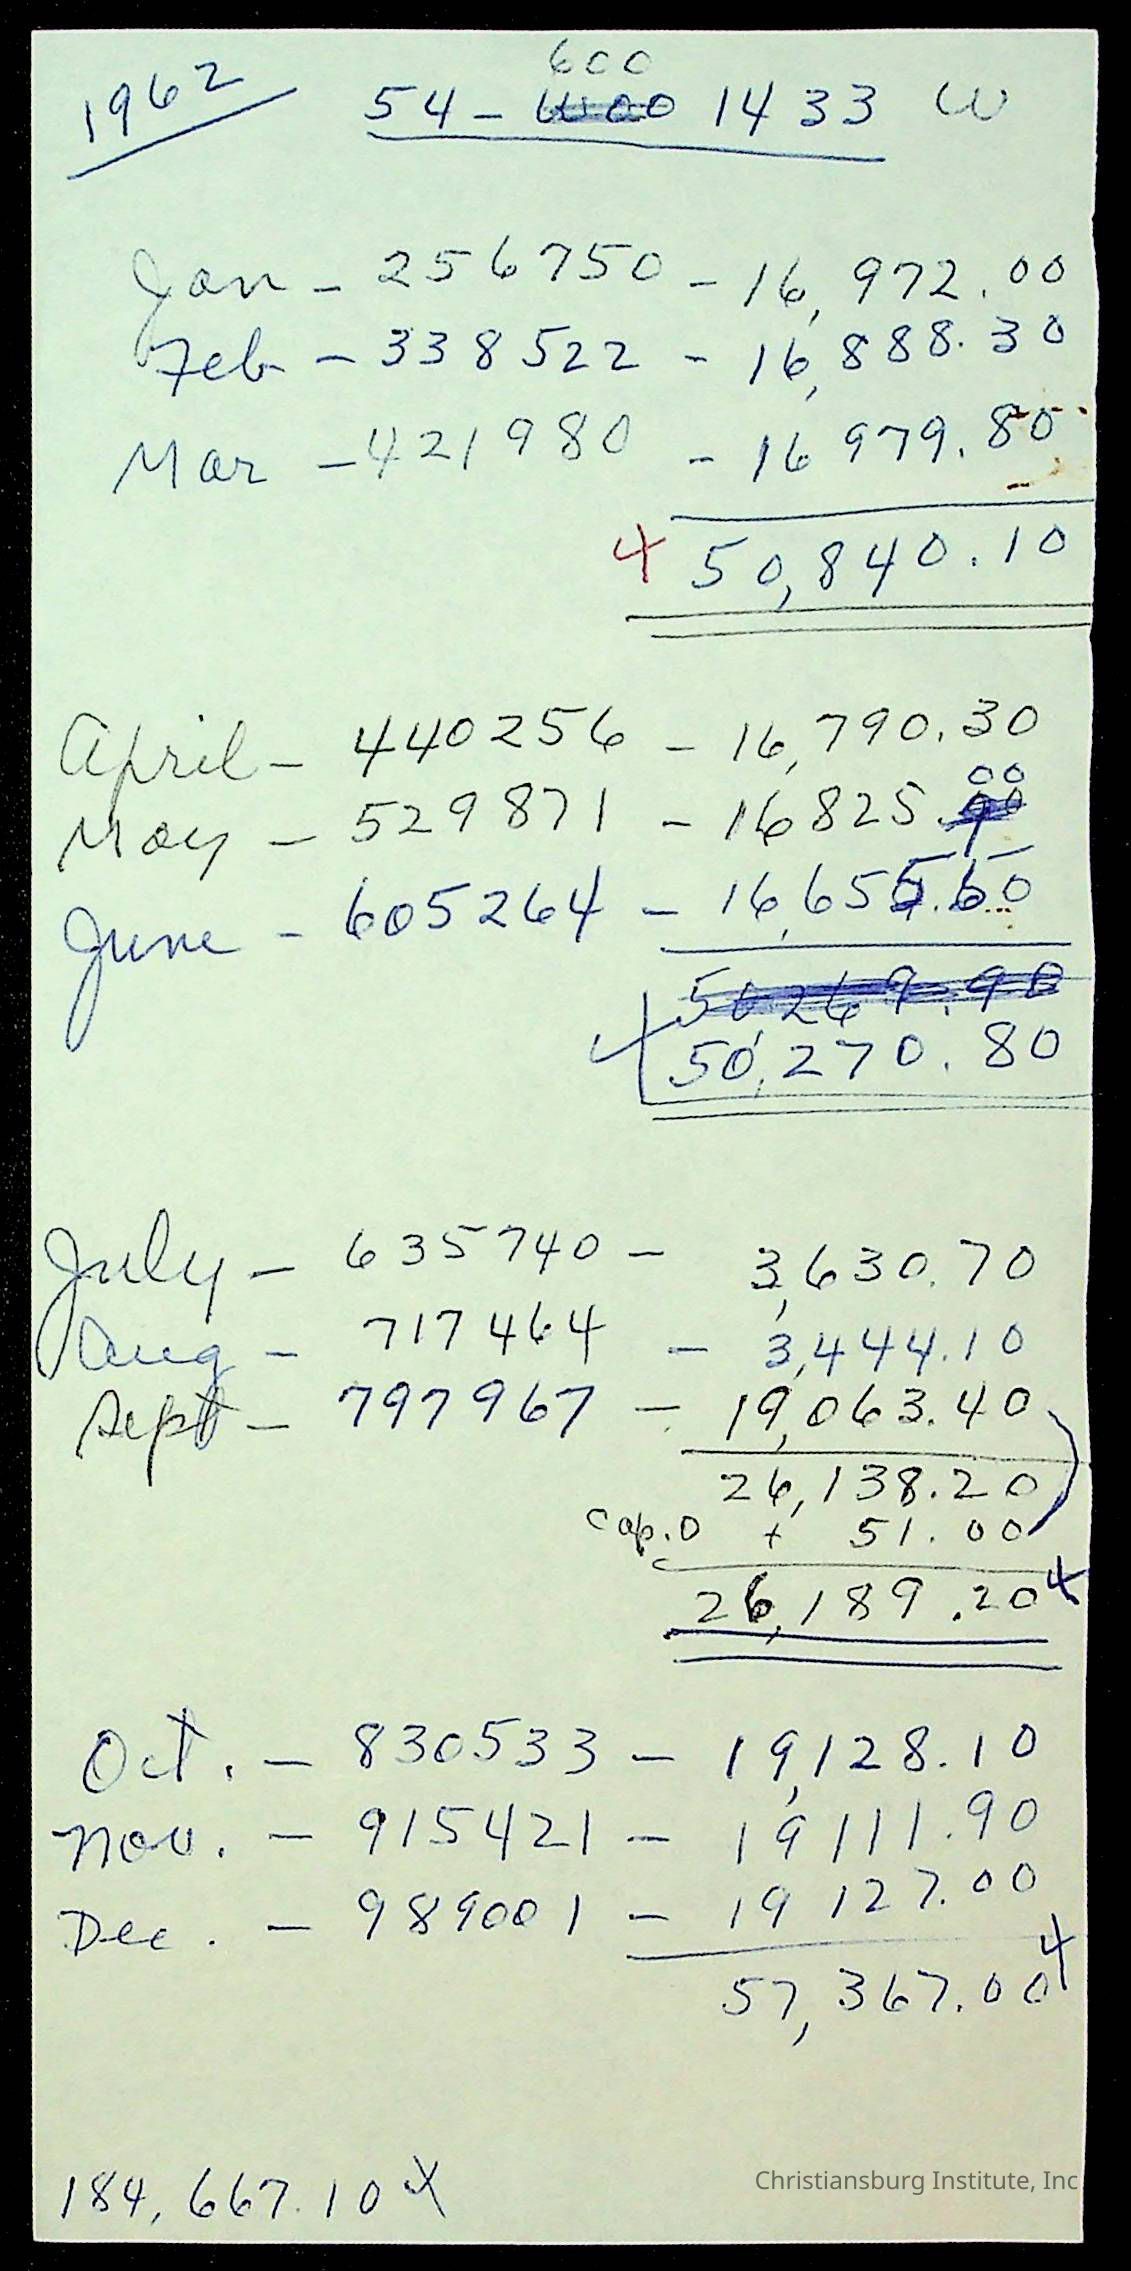 600
1962 54- 1433 W
Jan - 256750 - 16,972.00
Feb - 338522 - 16,888.30
Mar - 421980 - 16 979.80
4 50,840.10
April - 440256 - 16,790.30
00
May - 529871 - 16825.
June - 605264 - 16,655.50
50,269.90
4 50,270.80
July - 635740 - 3,630.70
Aug - 717464 - 3,444.10
Sept - 797967 - 19,063.40
26,138.20
Cap. D + 51.00
26,189.20 4
Oct. - 830533 - 19,128.10
Nov. - 915421 - 19111.90
Dec. - 989001 - 19 127.00
57,367.00 4
184,667.10 4
Christiansburg Institute, Inc